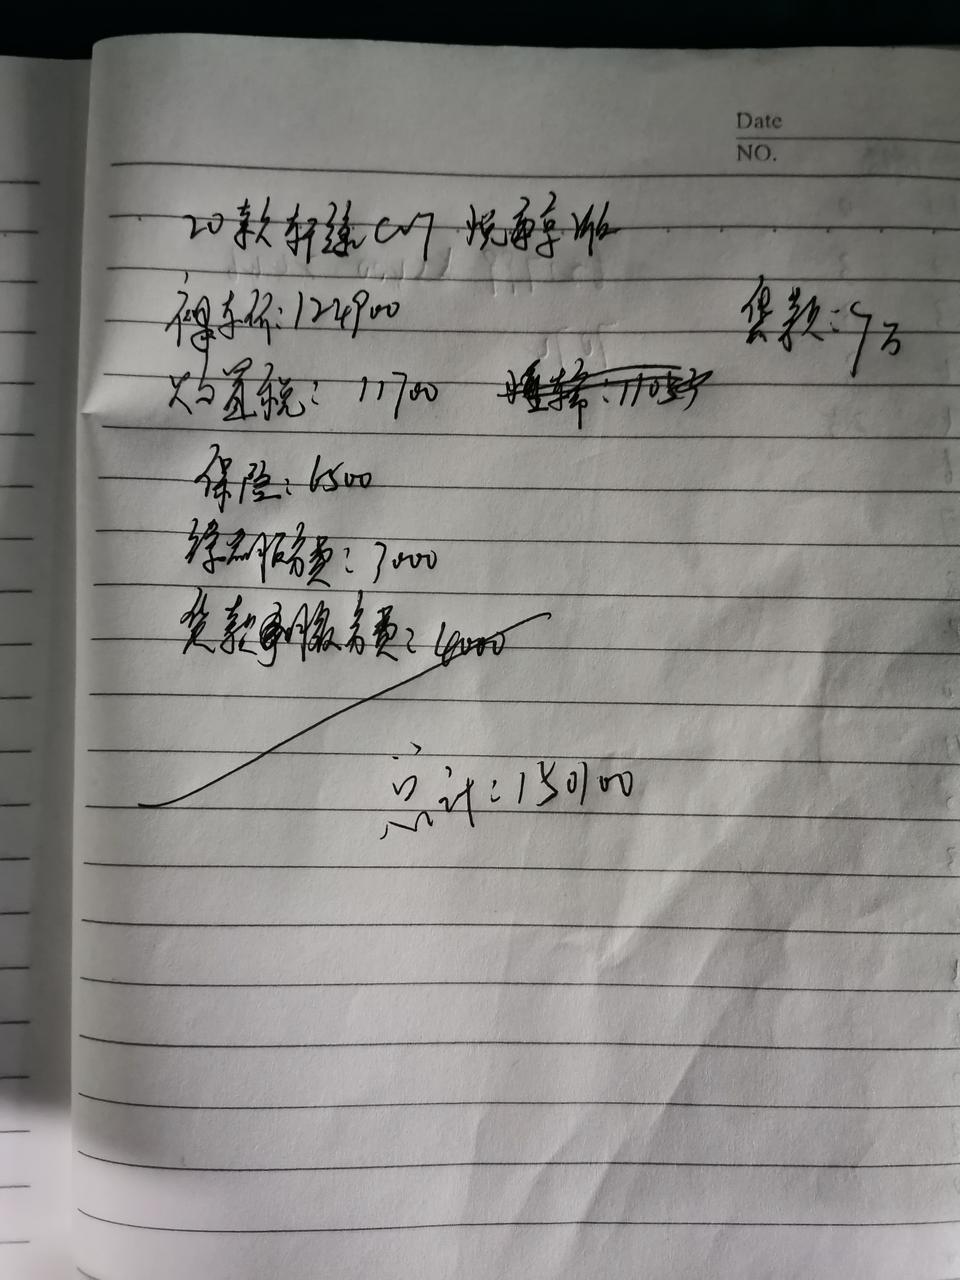 Date
NO.
20款轩逸CVT 悦享版
裸车价:124900 贷款:9万
购置税:11700
保险:6500
综合服务费:3000
贷款服务费:4000
总计:150100